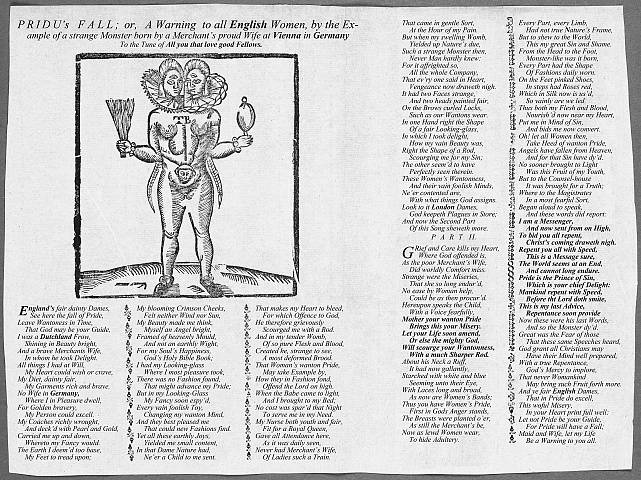 PRIDU's FALL; or, A Warning to all English Women, by the Ex-
ample of a strange Monster born by a Merchant's proud Wife at Vienna in Germany
To the Tune of All you that love good Fellows.
England's fair dainty Dames,
See here the fall of Pride,
Leave Wantonness in Time,
That God may be your Guide,
I was a Dutchland Frow,
Shining in Beauty bright,
And a brave Merchants Wife,
In whom he took Delight.
All things I had at Will,
My Heart could wish or crave,
My Diet, dainty fair,
My Garments rich and brave.
No Wife in Germany,
Where I in Pleasure dwell,
For Golden bravery,
My Person could excell.
My Coaches richly wrought,
And deck'd with Pearl and Gold,
Carried me up and down,
Wherein my Fancy would.
The Earth I deem'd too base,
My Feet to tread upon;
My blooming Crimson Cheeks,
Felt neither Wind nor Sun,
My Beauty made me think,
Myself an Angel bright,
Framed of heavenly Mould,
And not an earthly Wight.
For my Soul's Happiness,
God's Holy Bible Book,
I had my Looking-glass
Where I most pleasure took,
There was no Fashion found,
That might advance my Pride;
But in my Looking-Glass
My Fancy soon espy'd,
Every vain foolish Toy,
Changing my wanton Mind,
And they best pleased me
That could new Fashions find.
Yet all these earthly Joys,
Yielded me small content,
In that Dame Nature had,
Ne'er a Child to me sent.
That makes my Heart to bleed,
For which Offence to God,
He therefore grievously
Scourged me with a Rod.
And in my tender Womb,
Of so pure Flesh and Blood,
Created he, strange to see,
A most deformed Brood.
That Women's wanton Pride,
May take Example by,
How they in Fashion fond,
Offend the Lord on high.
When the Babe came to light
And I brought to my Bed,
No cost was spar'd that Night
To serve me in my Need.
My Nurse both youth and fair,
Fit for a Royal Queen,
Gave all Attendance here,
As it was daily seen,
Never had Merchant's Wife,
Of Ladies such a Train.
That came in gentle Sort,
At the Hour of my Pain.
But when my swelling Womb,
Yielded up Nature's due,
Such a strange Monster then,
Never Man hardly knew:
For it affrighted so,
All the whole Company,
That ev'ry one said in Heart,
Vengeance now draweth nigh.
It had two Faces strange,
And two heads painted fair,
On the Brows curled Locks,
Such as our Wantons wear.
In one Hand right the Shape
Of a fair Looking-glass,
In which I took delight,
How my vain Beauty was,
Right the Shape of a Rod,
Scourging me for my Sin;
The other seem'd to have
Perfectly seen therein.
These Women's Wantonness,
And their vain foolish Minds,
Ne'er contented are,
With what things God assigns.
Look to it London Dames,
God keepeth Plagues in Store;
And now the Second Part
Of this Song sheweth more.
PART II.
GRief and Care kills my Heart,
Where God offended is,
As the poor Merchant's Wife,
Did worldly Comfort miss.
Strange were the Miseries,
That she so long endur'd,
No ease by Woman help,
Could be as then procur'd.
Hereupon speaks the Child,
With a Voice fearfully,
Mother your wanton Pride
Brings this your Misery.
Let your Life soon amend,
Or else the mighty God,
Will scourge your Wantonness,
With a much Sharper Rod.
About his Neck a Ruff,
It had now gallantly,
Starched with white and blue
Seeming unto their Eye.
With Laces long and broad,
As now are Women's Bands,
Thus you have Women's Pride,
First in Gods Anger stands.
The Breasts were planted o'er,
As still the Merchant's be,
Now as lewd Women wear,
To hide Adultery.
Every Part, every Limb,
Had not true Nature's Frame,
But to shew to the World,
This my great Sin and Shame.
From the Head to the Foot,
Monster-like was it born,
Every Part had the Shape
Of Fashions daily worn.
On the Feet pinked Shoes,
In steps had Roses red,
Which in Silk now is us'd,
So vainly are we led.
Thus both my Flesh and Blood,
Nourish'd now near my Heart,
Put me in Mind of Sin,
And bids me now convert.
Oh! let all Women then,
Take Heed of wanton Pride,
Angels have fallen from Heaven,
And for that Sin have dy'd.
No sooner brought to Light
Was this Fruit of my Youth,
But to the Counsel-house
It was brought for a Truth;
Where to the Magistrates
In a most fearful Sort,
Began aloud to speak,
And these words did report:
I am a Messenger,
And now sent from on High,
To bid you all repent,
Christ's coming draweth nigh.
Repent you all with Speed,
This is a Message sure,
The World seems at an End,
And cannot long endure.
Pride is the Prince of Sin,
Which is your chief Delight;
Mankind repent with Speed,
Before the Lord doth smite.
This is my last Advice,
Repentance soon provide
Now these were his last Words,
And so the Monster dy'd.
Great was the Fear of those
That these same Speeches heard,
God grant all Christians may
Have their Mind well prepared,
With a true Repentance,
God's Mercy to implore,
That never Womankind
May bring such Fruit forth more.
And ye fair English Dames,
That in Pride do excell,
This woful Misery,
In your Heart print full well:
Let not Pride be your Guide,
For Pride will have a Fall;
Maid and Wife, let my Life
Be a Warning to you all.